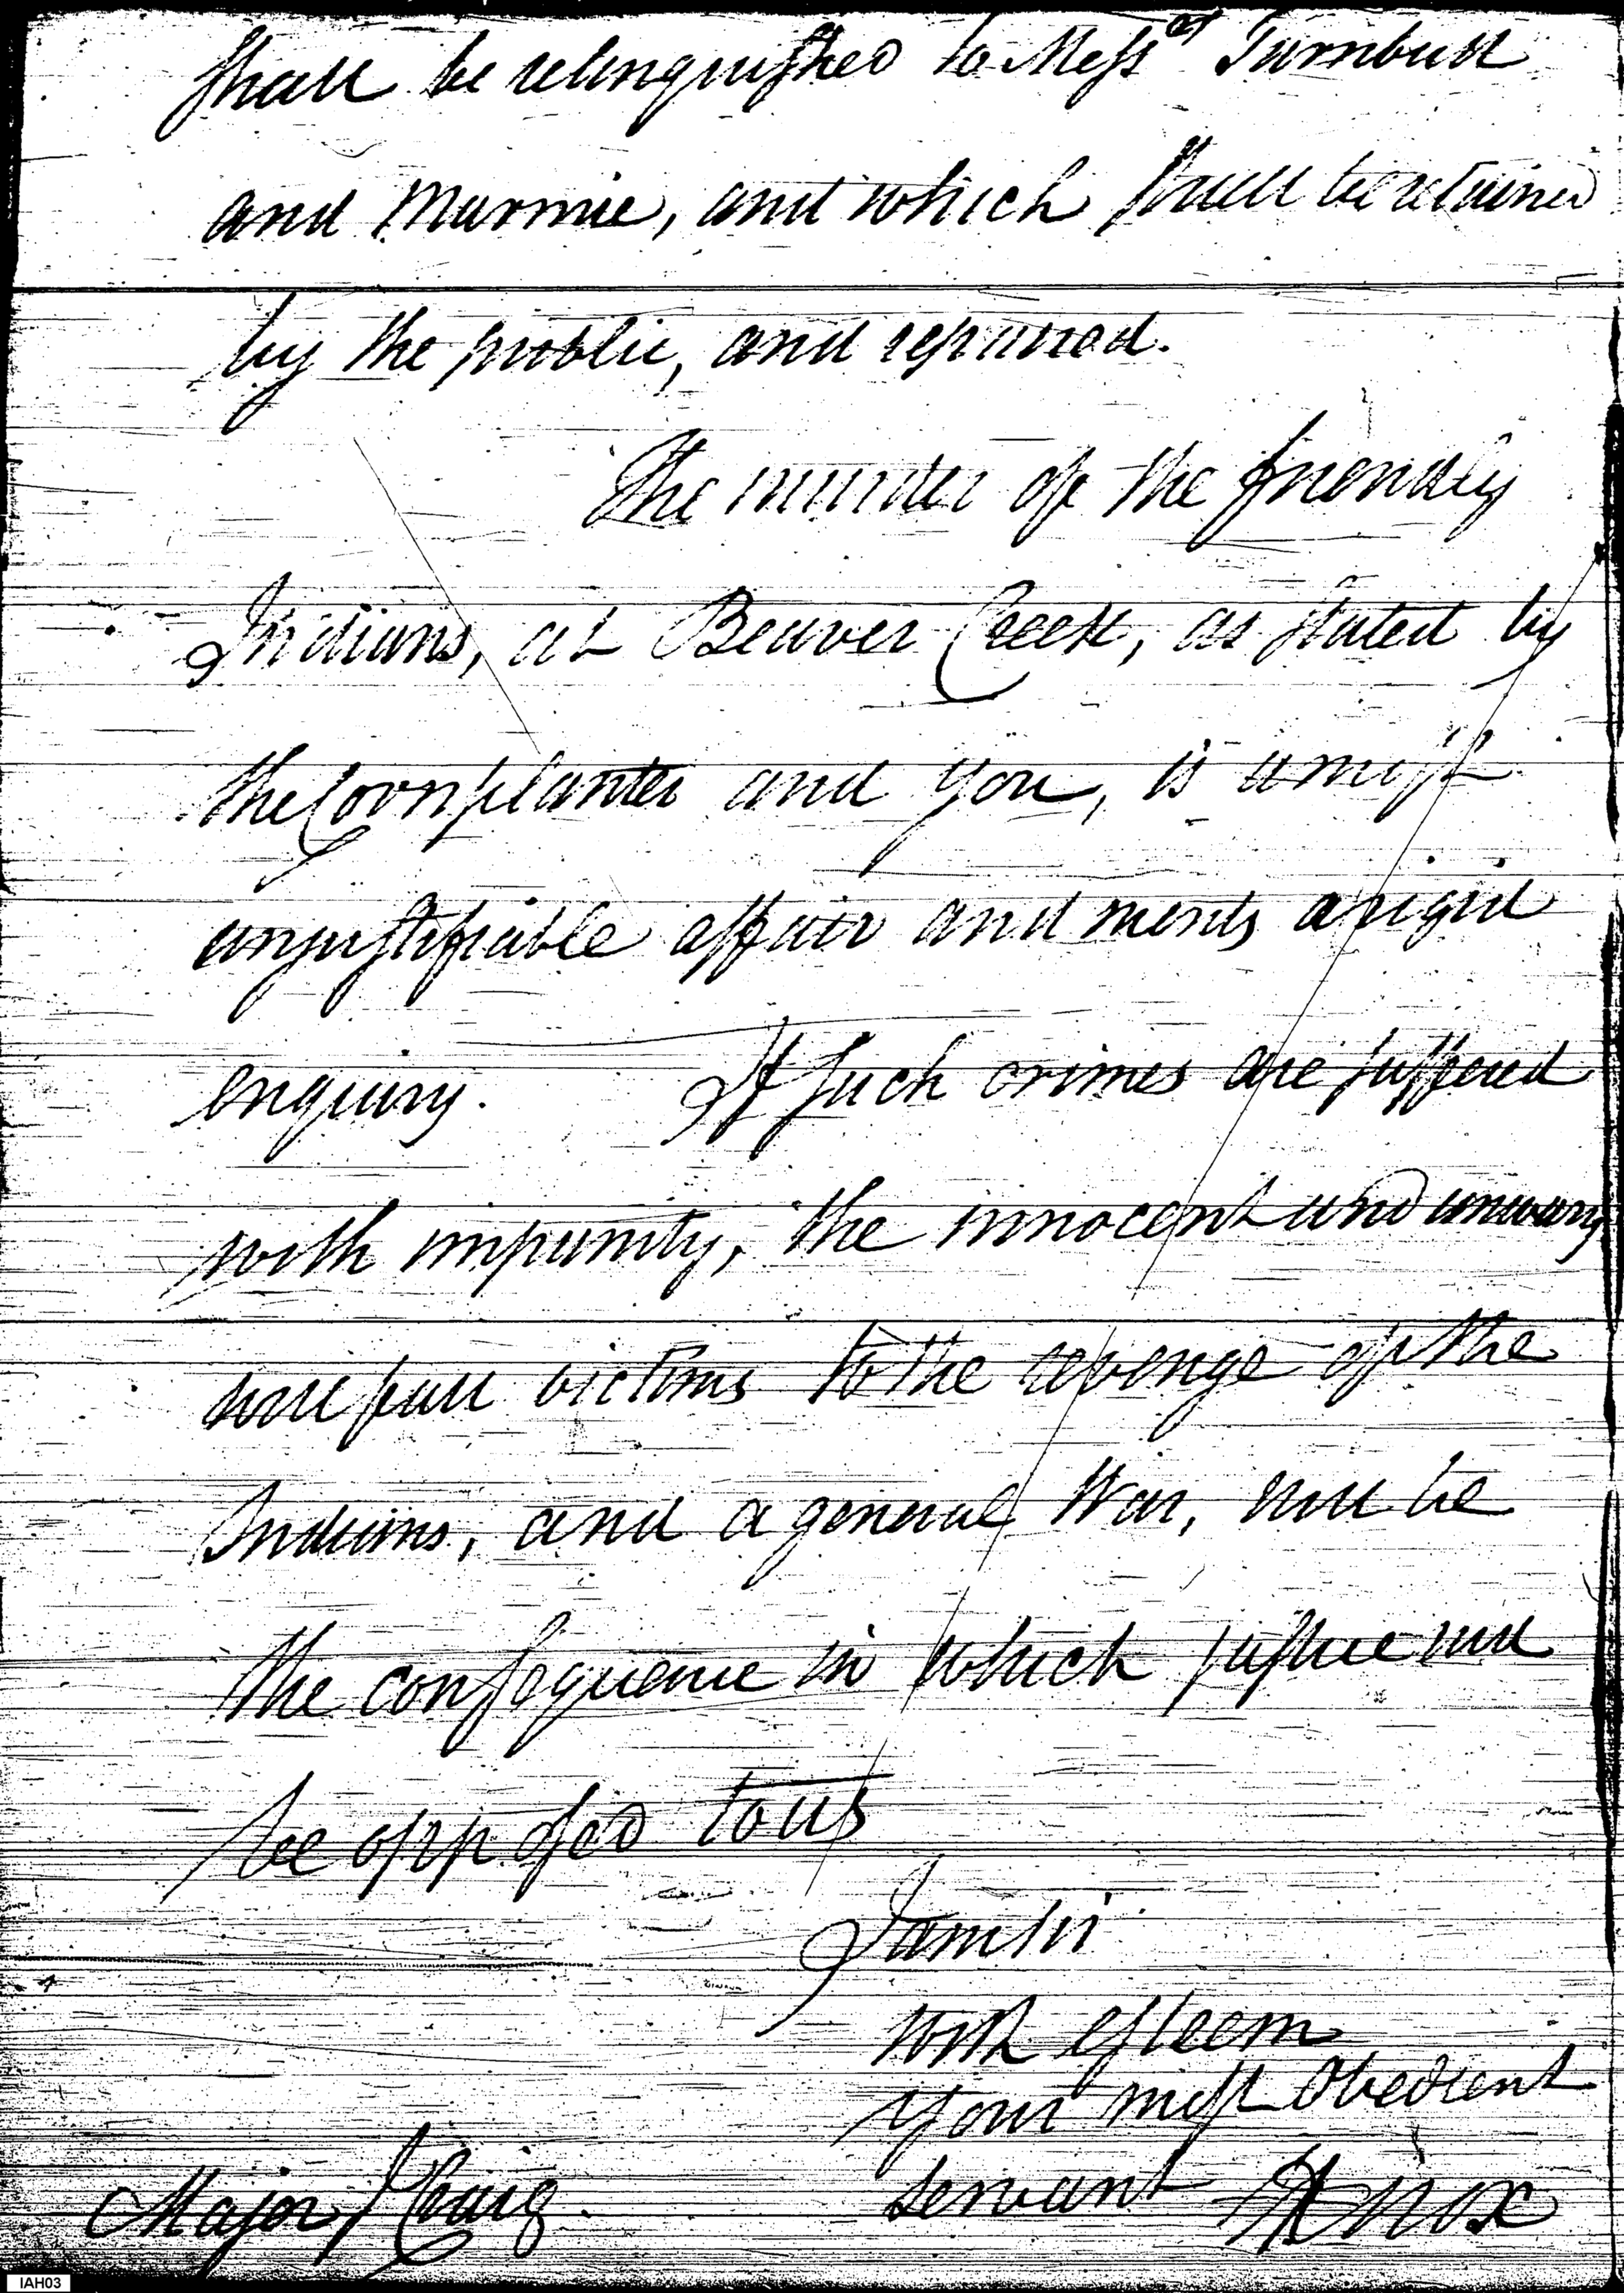 shall be relinquished to Mess.rs Turnbull
and Marmie, and which shall be retained
by the public, and repaired.
The murder of the friendly
Indians, at Beaver Creek, as stated by
the Cornplanter and you, is a most
unjustifiable affair and merits a rigid
enquiry. If such crimes are suffered
with impunity, the innocent and unwary
will fall victims to the revenge of the
Indians, and a general War, will be
the consequence in which justice will
be opposed to us
I am Sir
with esteem
your most Obedient
servant HKnox
Major I Craig.
IAH03